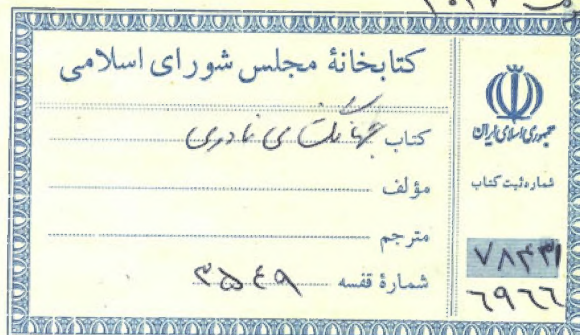 کتابخانهٔ مجلس شورای اسلامی
کتاب جهانگشای نادری
مؤلف
مترجم
شمارهٔ قفسه ۳۵۴۹
جمهوری اسلامی ایران
شمارهٔ ثبت کتاب
۷۸۴۳۱
۶۹۶۶